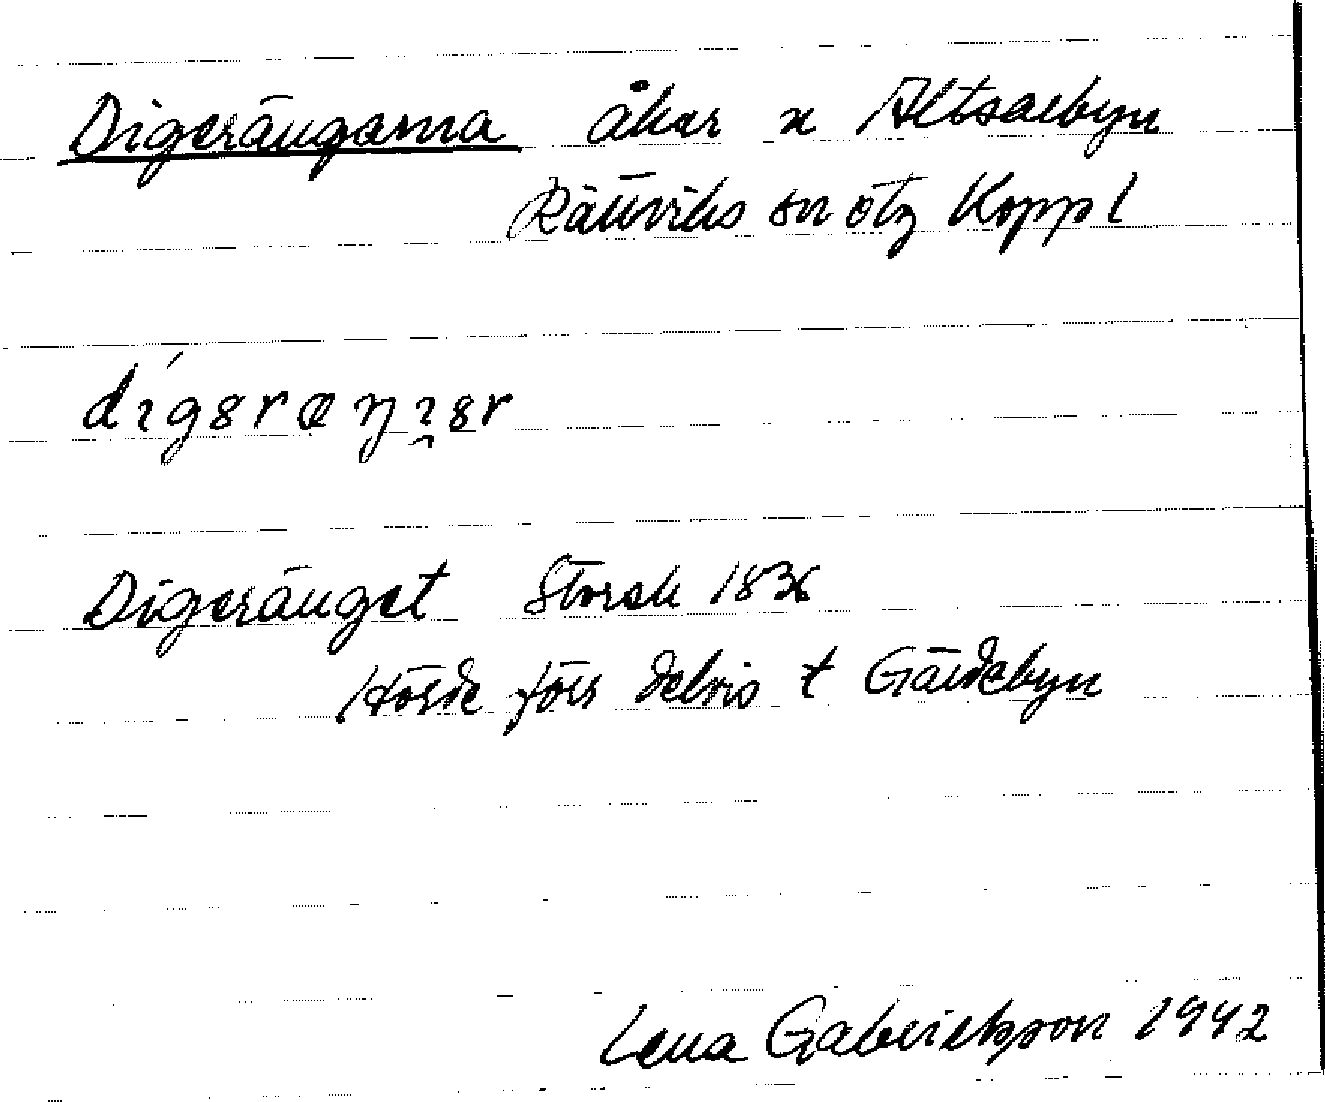 Digerängarna åkar n Altsarbyn
Rättviks sn ötg Koppl
digərœŋ ̯ıər
Digeränget Storsk 1836
Hörde förr delvis t Gärdebyn
Lena Gabrielsson 1942